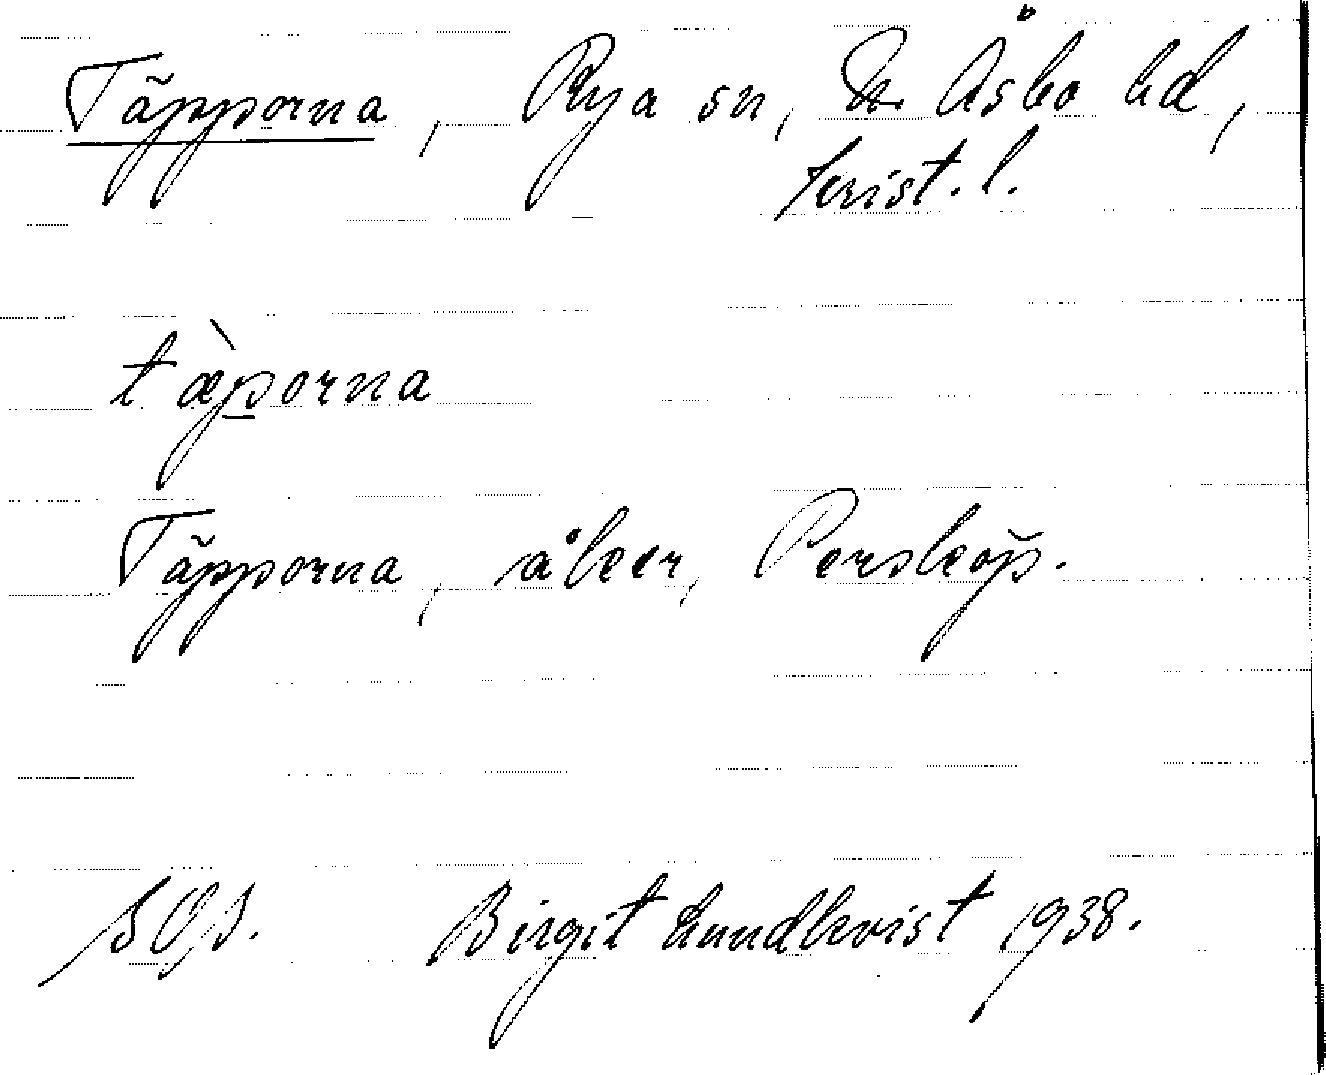 Täpporna, Rya sn, N. Åsbo hd,
Krist. l.
tæ̀porna
Täpporna, åker, Persköp.
SOJ. Birgit Lundkvist 1938.